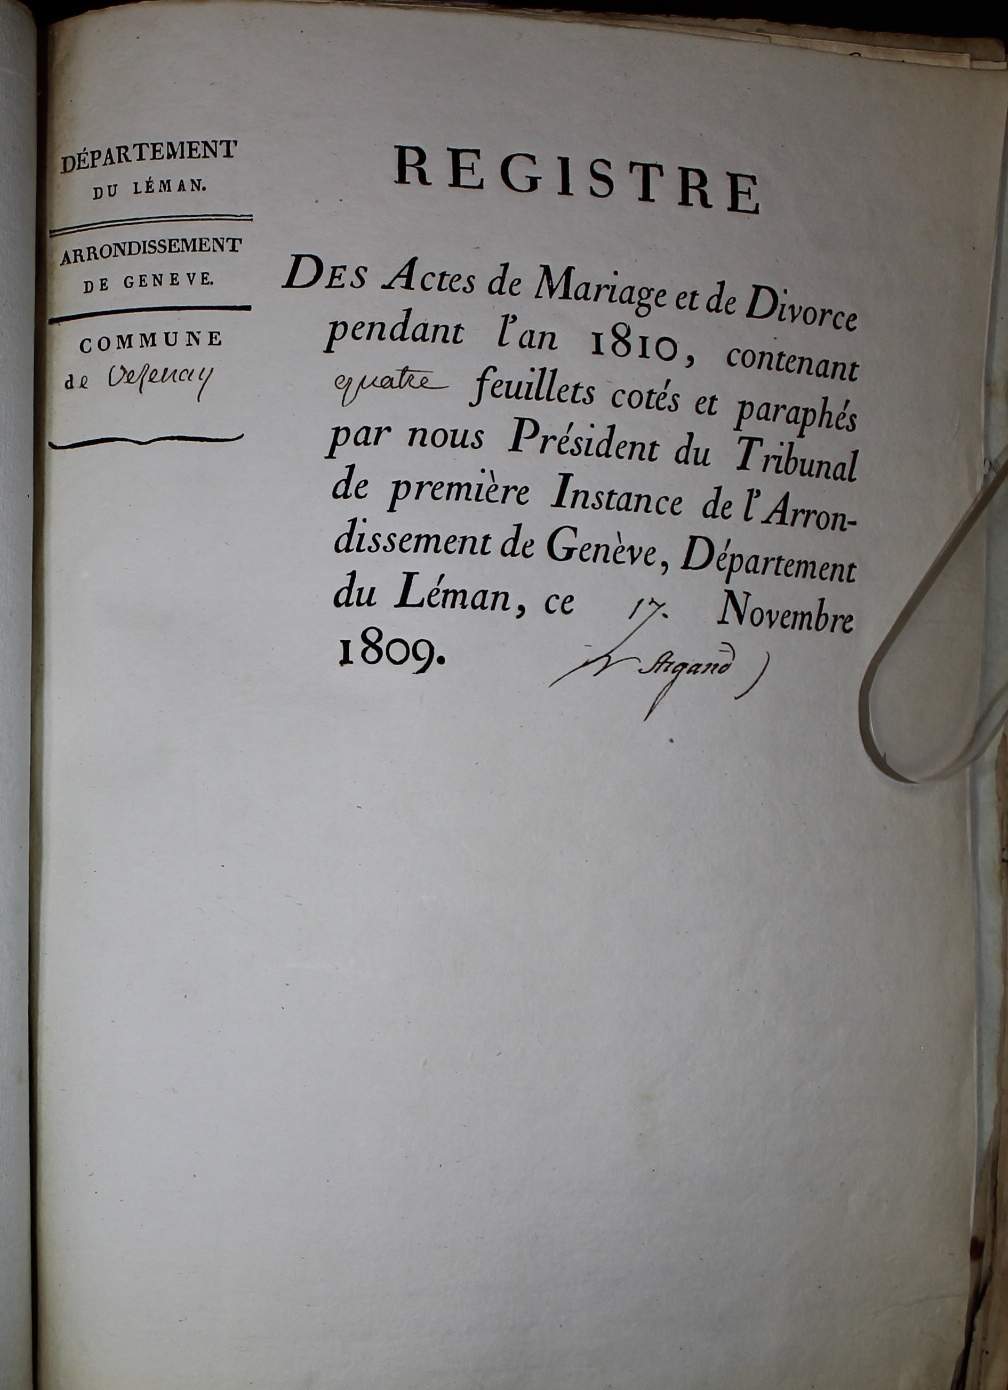 DÉPARTEMENT
DU LÉMAN.
ARRONDISSEMENT
DE GENEVE.
COMMUNE
de Vesenay
REGISTRE
DES Actes de Mariage et de Divorce
pendant l'an 1810, contenant
quatre feuillets cotés et paraphés
par nous Président du Tribunal
de première Instance de l'Arron-
dissement de Genève, Département
du Léman, ce 17. Novembre
1809.
Argand